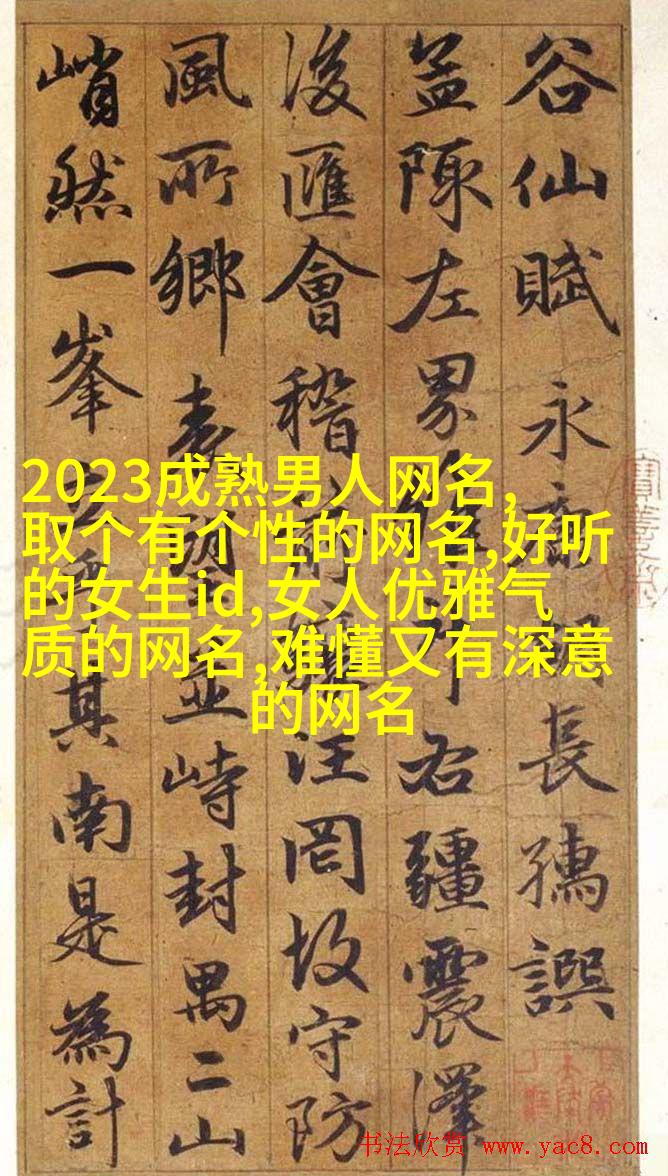 谷仙賦 永 長孺譔
左界 右疆震澤
後匯會稽 汪罔故守防
風所鄉 表 並峙封禺二山
峭然一峯 其南是為計
2023成熟男人网名,
取个有个性的网名,好听
的女生id,女人优雅气
质的网名,难懂又有深意
的网名
书法欣赏 www.yac8.com